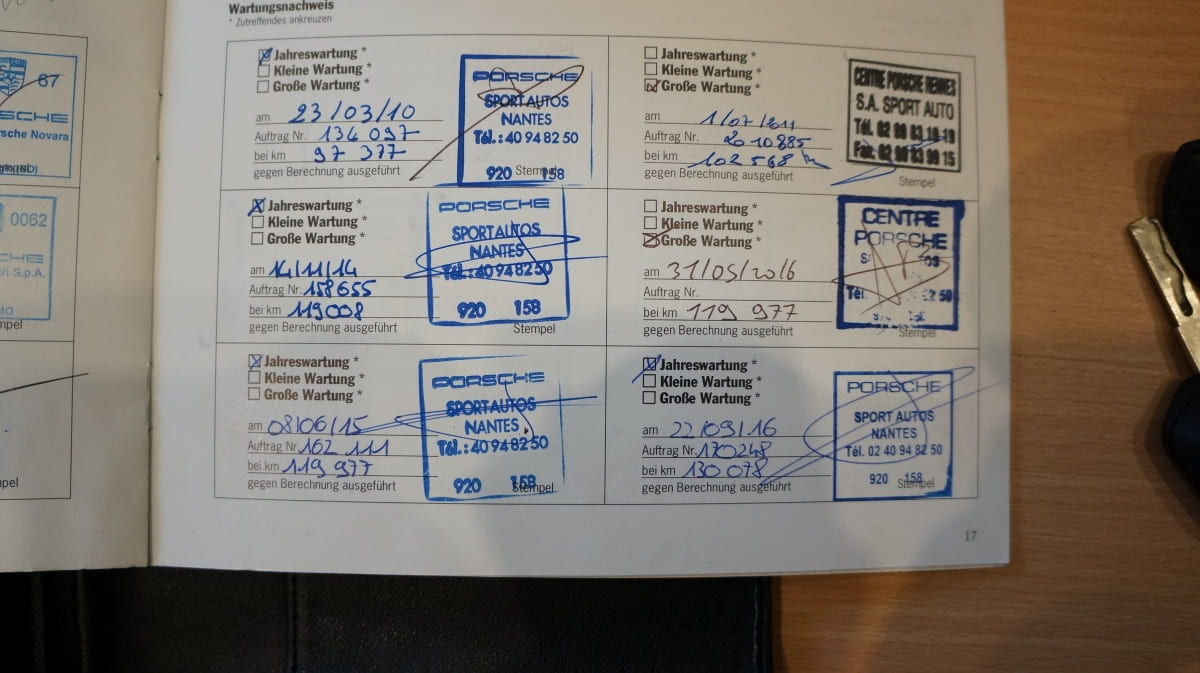 Wartungsnachweis
* Zutreffendes ankreuzen
67
SCHE
sche Novara
0062
CHE
ch S.p.A.
MO
npel
npel
Jahreswartung *
Kleine Wartung *
Große Wartung *
am 23/03/10
Auftrag Nr. 134 097
bei km 97 377
gegen Berechnung ausgeführt
PORSCHE
SPORT AUTOS
NANTES
Tél. : 40 94 82 50
920 158
Stempel
Jahreswartung *
Kleine Wartung *
Große Wartung *
am 1/07/2011
Auftrag Nr. 2010885
bei km 102 568 km
gegen Berechnung ausgeführt
CENTRE PORSCHE RENNES
S.A. SPORT AUTO
Tél. 02
Fax. 02
Stempel
Jahreswartung *
Kleine Wartung *
Große Wartung *
am 14/11/14
Auftrag Nr. 158655
bei km 119008
gegen Berechnung ausgeführt
PORSCHE
SPORT AUTOS
NANTES
Tél. : 40 94 82 50
920 158
Stempel
Jahreswartung *
Kleine Wartung *
Große Wartung *
am 31/05/2016
Auftrag Nr.
bei km 119 977
gegen Berechnung ausgeführt
CENTRE
PORSCHE
Tél. 50
Stempel
Jahreswartung *
Kleine Wartung *
Große Wartung *
am 08/06/15
Auftrag Nr. 162 111
bei km 119 977
gegen Berechnung ausgeführt
PORSCHE
SPORT AUTOS
NANTES
Tél. : 40 94 82 50
920 158
Stempel
Jahreswartung *
Kleine Wartung *
Große Wartung *
am 22/09/16
Auftrag Nr. 170248
bei km 130 078
gegen Berechnung ausgeführt
PORSCHE
SPORT AUTOS
NANTES
Tél. 02 40 94 82 50
920 158
Stempel
17